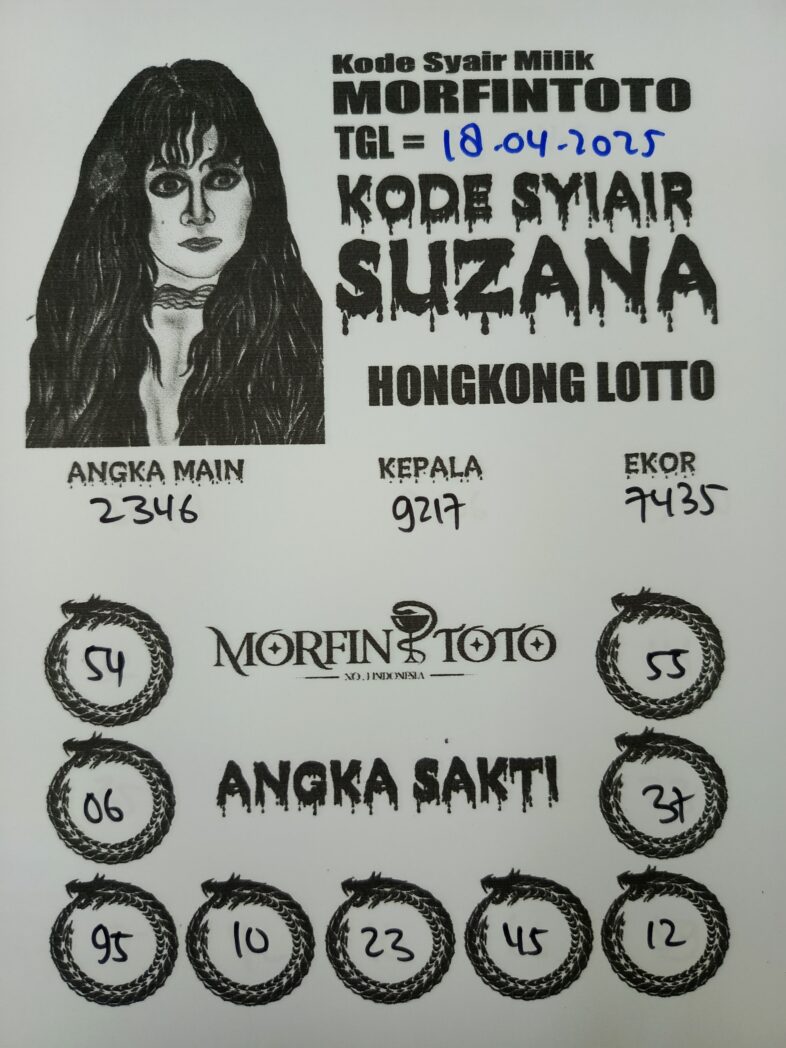 Kode Syair Milik
MORFINTOTO
TGL = 18-04-2025
KODE SYIAIR
SUZANA
HONGKONG LOTTO
ANGKA MAIN KEPALA EKOR
2346 9217 7435
54 MORFIN TOTO 55
NO.1 INDONESIA
06 ANGKA SAKTI 37
95 10 23 45 12